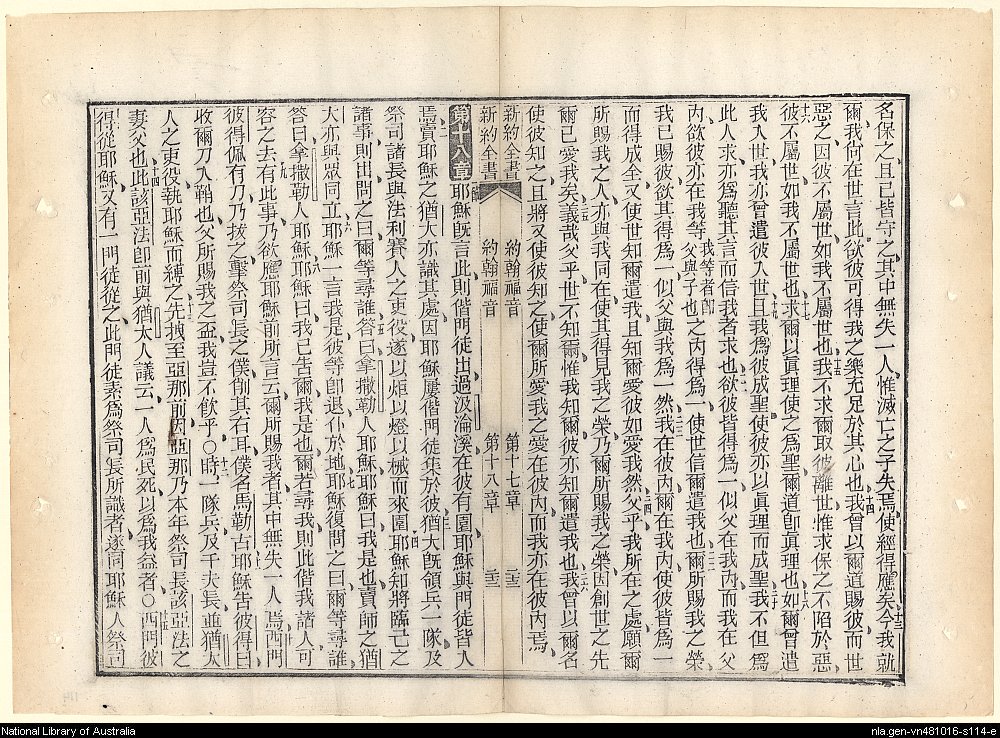 名保之且已皆守之其中無失一人惟滅亡之子失焉使經得應矣十三今我就
爾我尙在世言此欲彼可得我之樂充足於其心也十四我曾以爾道賜彼而世
惡之因彼不屬世如我不屬世也十五我不求爾取彼離世惟求保之不陷於惡
十六彼不屬世如我不屬世也十七求爾以眞理使之爲聖爾道卽眞理也十八如爾曾遣
我入世我亦曾遣彼入世十九且我爲彼成聖使彼亦以眞理而成聖二十我不但爲
此人求亦爲聽其言而信我者求也二一欲彼皆得爲一似父在我內而我在父
內欲彼亦在我等我等者卽父與子也之內得爲一使世信爾遣我也二二爾所賜我之榮
我已賜彼欲其得爲一似父與我爲一二三然我在彼內爾在我內使彼皆爲一
而得成全又使世知爾遣我且知爾愛彼如愛我然二四父乎我所在之處願爾
所賜我之人亦與我同在使其得見我之榮乃爾所賜我之榮因創世之先
爾已愛我矣二五義哉父乎世不知爾惟我知爾彼亦知爾遣我也二六我曾以爾名
使彼知之且將又使彼知之使爾所愛我之愛在彼內而我亦在彼內焉
新約全書 約翰福音 第十七章
新約全書 約翰福音 第十八章
第十八章 耶穌旣言此則偕門徒出過汲淪溪在彼有園耶穌與門徒皆入
焉二賣耶穌之猶大亦識其處因耶穌屢偕門徒集於彼三猶大旣領兵一隊及
祭司諸長與法利賽人之吏役遂以炬以燈以械而來園四耶穌知將臨己之
諸事則出問之曰爾等尋誰五答曰拿撒勒人耶穌耶穌曰我是也賣師之猶
大亦與眾同立六耶穌一言我是彼等卽退仆於地七耶穌復問之曰爾等尋誰
答曰拿撒勒人耶穌八耶穌曰我已告爾我是也爾若尋我則此偕我諸人可
容之去九有此事乃欲應耶穌前所言云爾所賜我者其中無失一人焉十西門
彼得佩有刀乃拔之擊祭司長之僕削其右耳僕名馬勒古十一耶穌告彼得曰
收爾刀入鞘也父所賜我之盃我豈不飮乎○十二時一隊兵及千夫長並猶太
人之吏役執耶穌而縛之十三先拽至亞那前因亞那乃本年祭司長該亞法之
妻父也十四此該亞法卽前與猶太人議云一人爲民死以爲我益者○十五西門彼
得從耶穌又有一門徒從之此門徒素爲祭司長所識者遂同耶穌入祭司
National Library of Australia
nla.gen-vn481016-s114-e